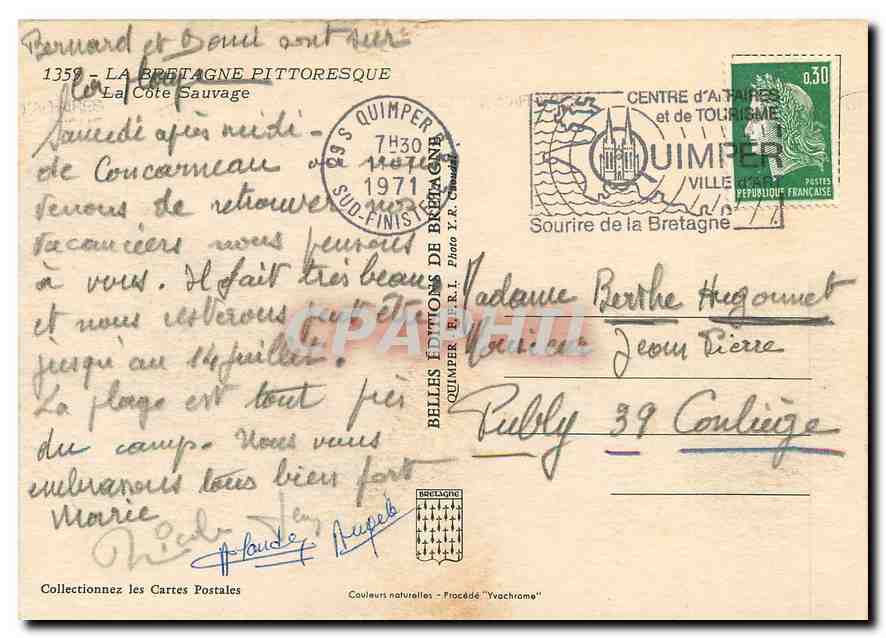 Bernard et Domi sont sur
les
1359 - LA BRETAGNE PITTORESQUE
La Côte Sauvage
Samedi après midi -
de Concarneau où nous
venons de retrouver nos
vacanciers nous pensons
à vous. Il fait très beau
et nous resterons peut être
jusqu'au 14 juillet.
La plage est tout près
du camp. Nous vous
embrassons tous bien fort
Marie
Nicole
Claude Angèle
Collectionnez les Cartes Postales
29 S QUIMPER
7H30
1971
SUD-FINISTERE
BELLES ÉDITIONS DE BRETAGNE
QUIMPER
Photo Y.R.
CENTRE d'AFFAIRES
et de TOURISME
QUIMPER
VILLE d'ART
Sourire de la Bretagne
0,30
POSTES
REPUBLIQUE FRANÇAISE
Madame Berthe Hugonnet
Monsieur Jean Pierre
Publy 39 Conliège
BRETAGNE
Couleurs naturelles - Procédé "Yvachrome"
CPAPHIL